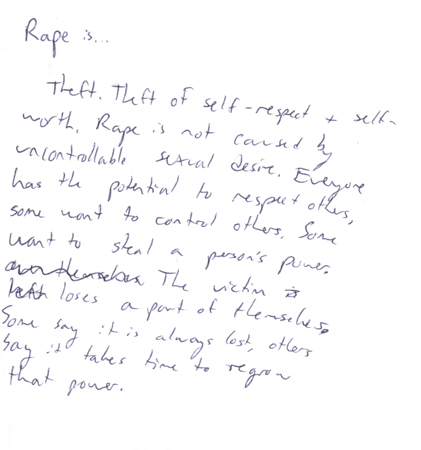 Rape is...
Theft. Theft of self-respect + self-
worth. Rape is not caused by
uncontrollable sexual desire. Everyone
has the potential to respect others,
some want to control others. Some
want to steal a person's power.
The victim
loses a part of themselves.
Some say it is always lost, others
say it takes time to regrow
that power.